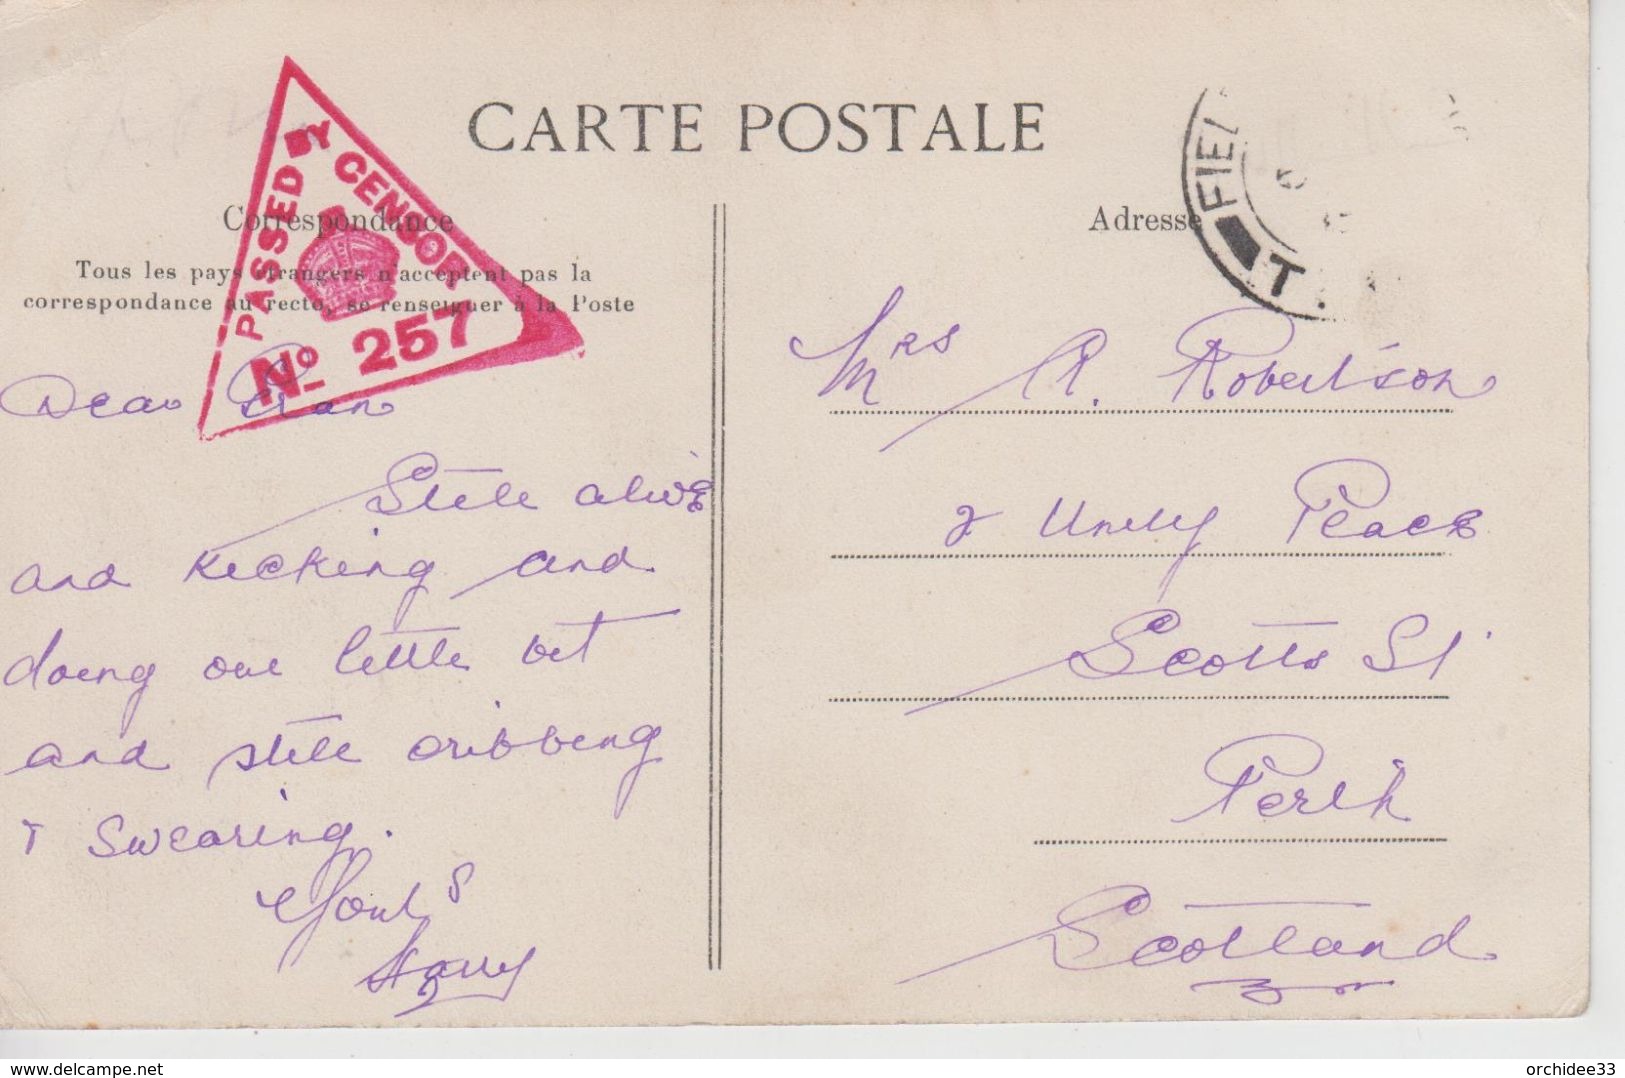 CARTE POSTALE
PASSED BY CENSOR
Nº 257
FIEL
T.
Correspondance
Tous les pays étrangers n'acceptent pas la
correspondance au recto, se renseigner à la Poste
Adresse
Dear
Still alive
and kicking and
doing our little bit
and still cribbing
& swearing.
Yours
Harry
Mrs A. Robertson
2 Unity Place
Scotts St
Perth
Scotland
delcampe.net
orchidee33